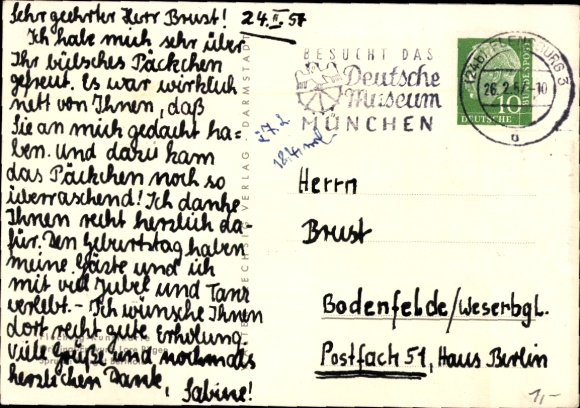 Sehr geehrter Herr Brust! 24.II.57
Ich habe mich sehr über
Ihr hübsches Päckchen
gefreut. Es war wirklich
nett von Ihnen, daß
Sie an mich gedacht ha-
ben. Und dazu kam
das Päckchen noch so
überraschend! Ich danke
Ihnen recht herzlich da-
für. Den Geburtstag haben
meine Gäste und ich
mit viel Jubel und Tanz
verlebt. – Ich wünsche Ihnen
dort recht gute Erholung.
Viele Grüße und nochmals
herzlichen Dank,
Sabine!
VERLAG · DARMSTADT
BESUCHT DAS
Deutsche
Museum
MÜNCHEN
(24b) FLENSBURG 3
26.2.57.-10
a
10
DEUTSCHE
BUNDESPOST
Herrn
Brust
Bodenfelde/Weserbgl.
Postfach 51, Haus Berlin
1,-